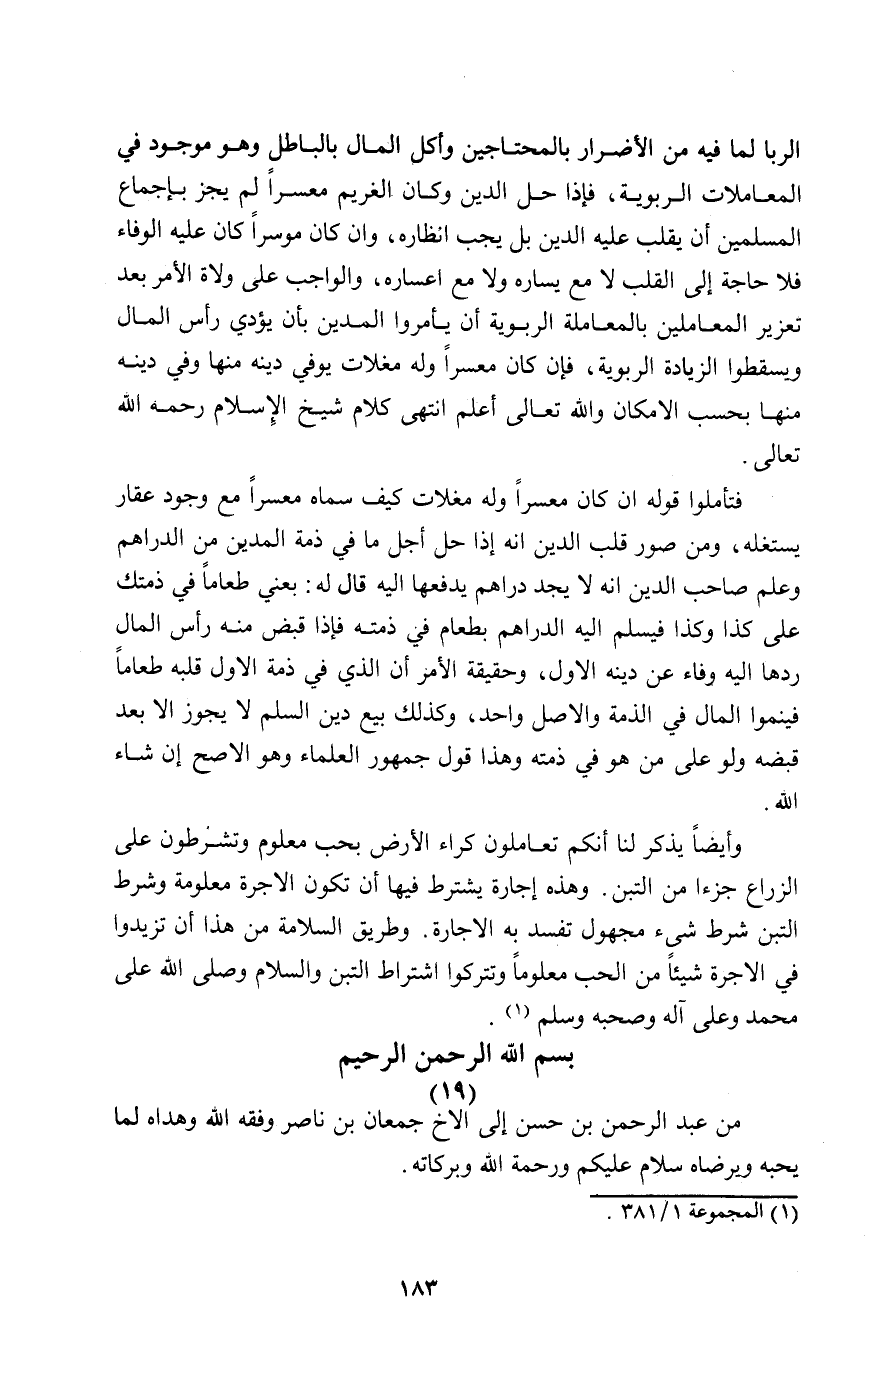 الربا لما فيه من الأضرار بالمحتاجين وأكل المال بالباطل وهو موجود في
المعاملات الربوية، فإذا حل الدين وكان الغريم معسراً لم يجز بإجماع
المسلمين أن يقلب عليه الدين بل يجب انظاره، وان كان موسراً كان عليه الوفاء
فلا حاجة إلى القلب لا مع يساره ولا مع اعساره، والواجب على ولاة الأمر بعد
تعزير المعاملين بالمعاملة الربوية أن يأمروا المدين بأن يؤدي رأس المال
ويسقطوا الزيادة الربوية، فإن كان معسراً وله مغلات يوفي دينه منها وفي دينه
منها بحسب الامكان والله تعالى أعلم انتهى كلام شيخ الإسلام رحمه الله
تعالى .
فتأملوا قوله ان كان معسراً وله مغلات كيف سماه معسراً مع وجود عقار
يستغله، ومن صور قلب الدين انه إذا حل أجل ما في ذمة المدين من الدراهم
وعلم صاحب الدين انه لا يجد دراهم يدفعها اليه قال له: بعني طعاماً في ذمتك
على كذا وكذا فيسلم اليه الدراهم بطعام في ذمته فإذا قبض منه رأس المال
ردها اليه وفاء عن دينه الاول، وحقيقة الأمر أن الذي في ذمة الاول قلبه طعاماً
فينموا المال في الذمة والاصل واحد، وكذلك بيع دين السلم لا يجوز الا بعد
قبضه ولو على من هو في ذمته وهذا قول جمهور العلماء وهو الاصح إن شاء
الله .
وأيضاً يذكر لنا أنكم تعاملون كراء الأرض بحب معلوم وتشرطون على
الزراع جزءا من التبن. وهذه إجارة يشترط فيها أن تكون الاجرة معلومة وشرط
التبن شرط شيء مجهول تفسد به الاجارة. وطريق السلامة من هذا أن تزيدوا
في الاجرة شيئاً من الحب معلوماً وتتركوا اشتراط التبن والسلام وصلى الله على
محمد وعلى آله وصحبه وسلم (١) .
بسم الله الرحمن الرحيم
(١٩)
من عبد الرحمن بن حسن إلى الاخ جمعان بن ناصر وفقه الله وهداه لما
يحبه ويرضاه سلام عليكم ورحمة الله وبركاته .
(١) المجموعة ٣٨١/١ .
١٨٣